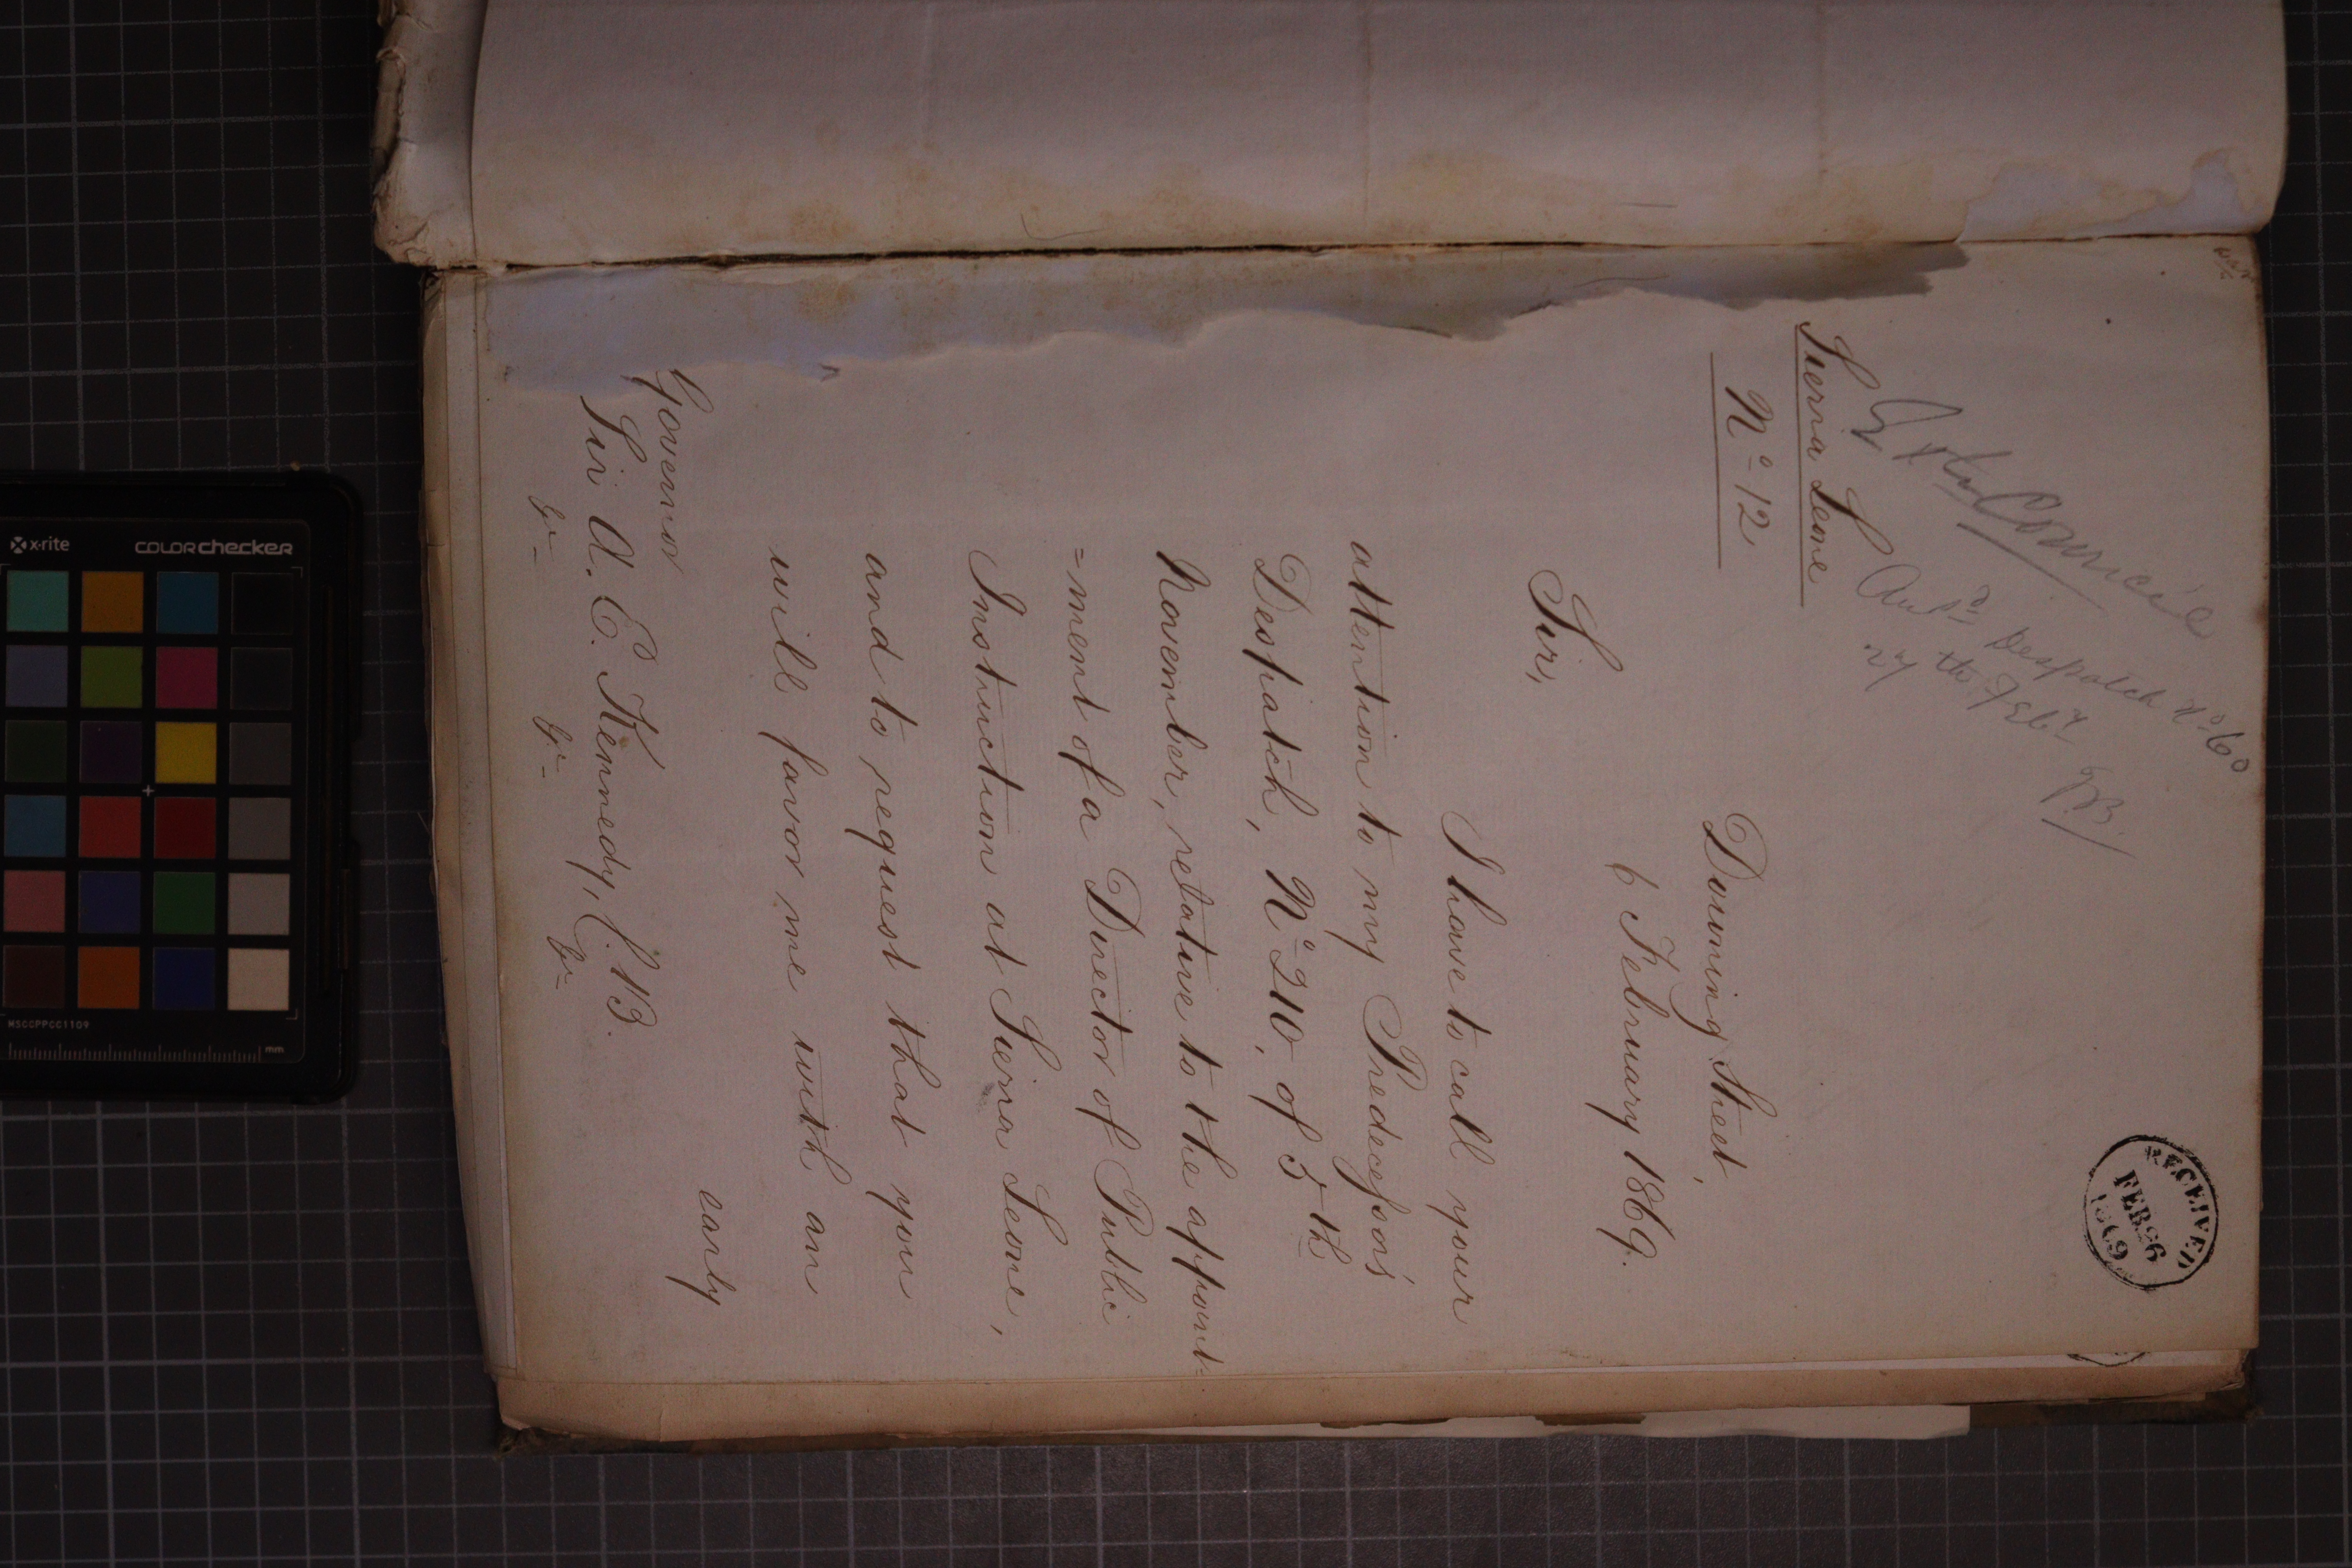 RECEIVED
FEB 26
1869
Council
Ans.d Despatch No. 60
27
Sierra Leone
No. 12
Downing Street,
6 February 1869.
Sir,
I have to call your
attention to my Predecessor's
Despatch, No. 210, of 5th
November, relative to the appoint-
=ment of a Director of Public
Instruction at Sierra Leone,
and to request that you
will favor me with an
early
Governor
Sir A. E. Kennedy, C.B.
&c &c &c
x-rite
colorchecker
MSCCPPCC1109
mm